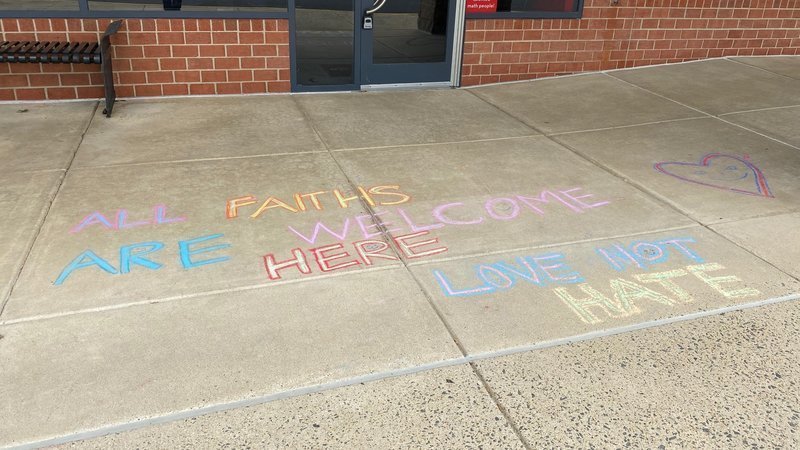 math people!
ALL FAITHS
ARE WELCOME
HERE
LOVE NOT
HATE